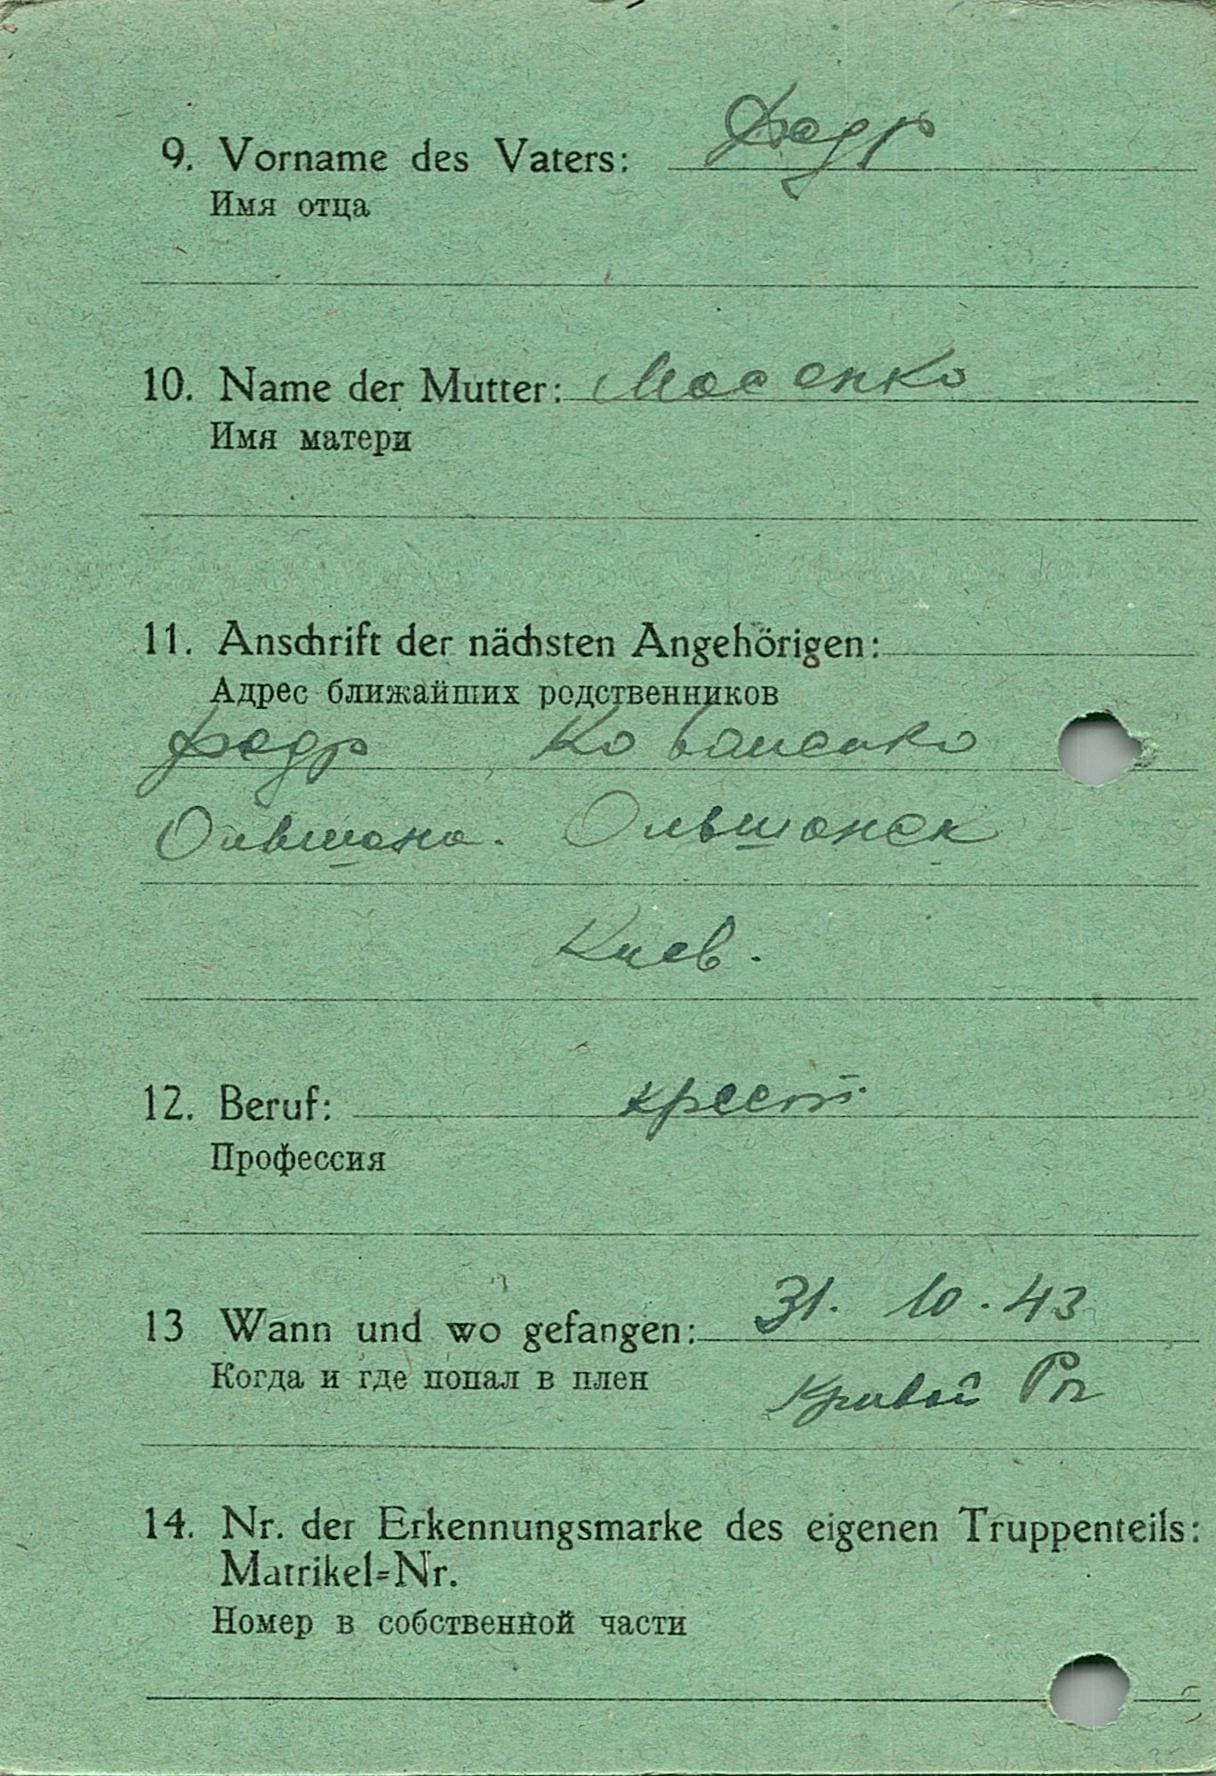 9. Vorname des Vaters: Федр
Имя отца
10. Name der Mutter: Мосенко
Имя матери
11. Anschrift der nächsten Angehörigen:
Адрес ближайших родственников
Федр Коваленко
Ольшана. Ольшанск
Киев.
12. Beruf: крест.
Профессия
13 Wann und wo gefangen: 31. 10. 43
Когда и где попал в плен Кривой Рг
14. Nr. der Erkennungsmarke des eigenen Truppenteils:
Matrikel=Nr.
Номер в собственной части